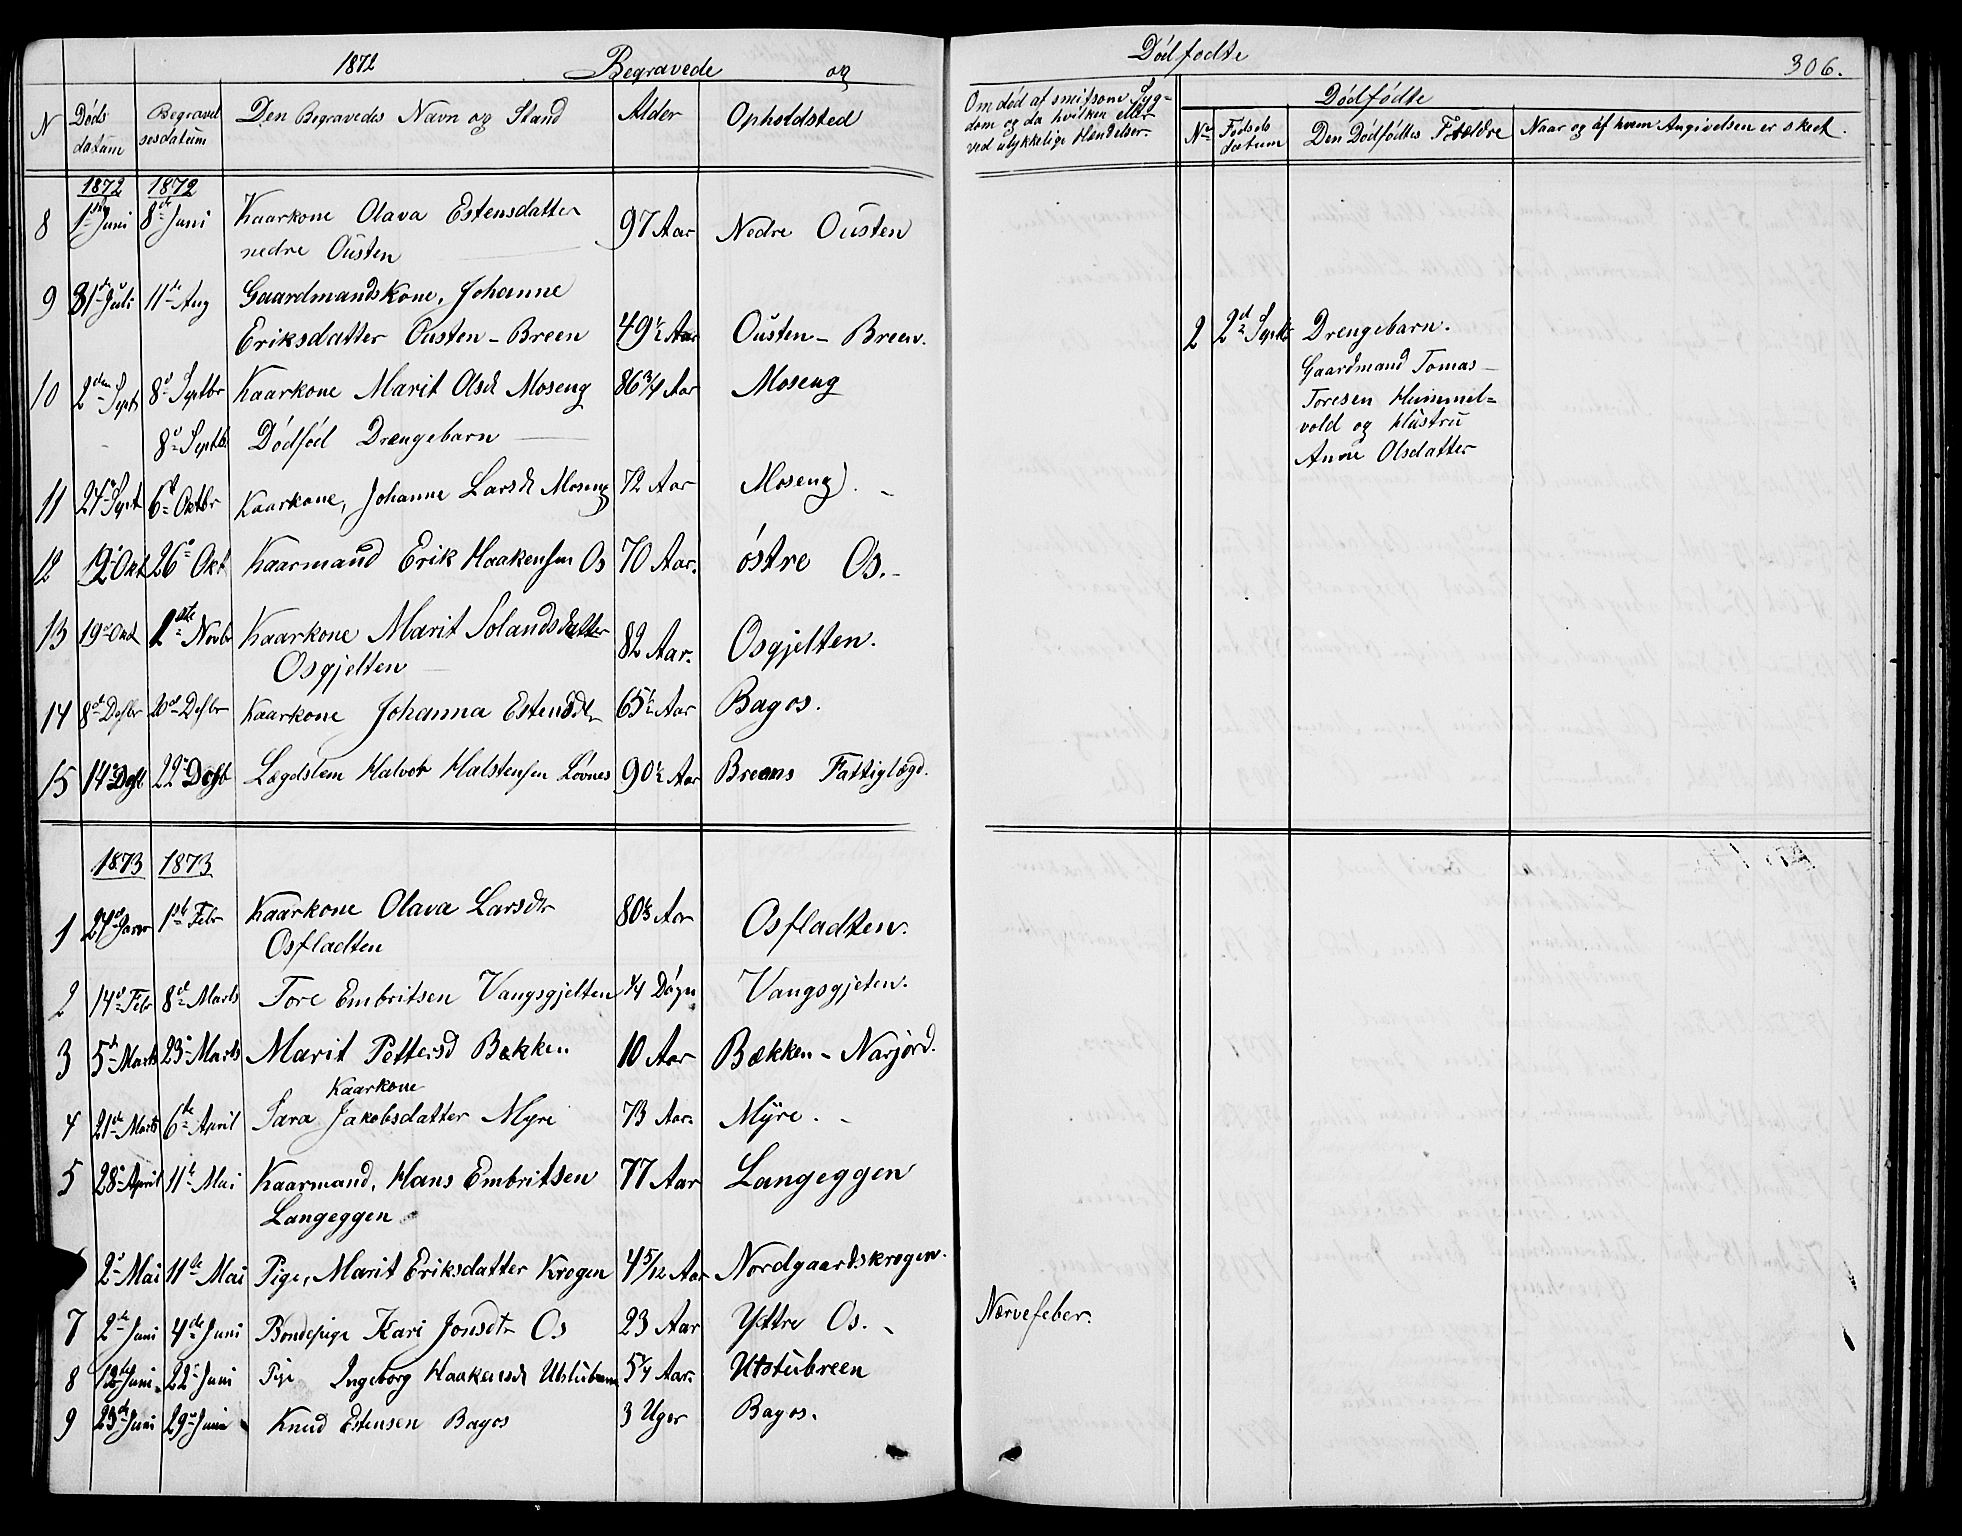 1872 Begravede og
N Døds datum Begravel sesdatum Den Begravedes Navn og Stand Alder Opholdsted
1872 1872
8 1ste Juni 8de Juni Kaarkone Olava Estensdatter
nedre Ousten 97 Aar Nedre Ousten
9 31de Juli 11de Aug Gaardmandskone, Johanne
Eriksdatter Ousten - Breen 49½ Aar Ousten - Breen.
10 2den Sept 8d Septbr Kaarkone Marit Olsd Moseng 86¾ Aar Moseng
8d Septb Dødfød Drengebarn
11 27 Sept 6t Oktbr Kaarkone, Johanne Larsd Moseng 72 Aar Moseng.
12 26 Okt Kaarmand Erik Haakensen Os 70 Aar. østre Os.
13 19 1ste Novbr Kaarkone Marit Solandsdatter
Osgjelten 82 Aar. Osgjelten.
14 8de Desbr 20d Desbr Kaarkone Johanna Estensdtr 65½ Aar Bagos.
15 14 Desb 22 Desb Lægdslem Halvor Halstensen Løvnes 90½ Aar Breens Fattiglægd.
1873 1873
1 27d Janr 1ste Febr Kaarkone Olava Larsdtr
Osfladten 80⅓ Aar Osfladten.
2 14d Febr 8de Marts Tore Embritsen Vangsgjelten ¼ Døgn Vangsgjeten.
3 5t Marts 23 Marts Marit Pettersd Bækken 10 Aar Bækken - Narjord.
Kaarkone
4 21de Marts 6te April Sara Jakobsdatter Myre 73 Aar. Myre.
5 28 April 11t Mai Kaarmand, Hans Embritsen
Langeggen 77 Aar Langeggen
2d Mai 11te Mai Pige, Marit Eriksdatter Krogen 4 5/12 Aar Nordgaardskrogen.
7 2de Juni 4de Juni Bondepige Kari Jonsdtr Os 23 Aar Yttre Os.
8 12te Juni 22 Juni Pige Ingeborg Haakensd Utstubreen 5¼ Aar. Utstubreen
9 23de Juni 29d Juni Knud Estensen Bagos 3 Uger Bagos.
Dødfødte 306.
Om død af smitsom Syg=
dom og da hvilken eller
ved ulykkelige Hændelser.
Dødfødte
No Fødsels datum Den Dødfødtes Forældre Naar og af hvem Angivelsen er skeet.
2 2d Septbr Drengebarn.
Gaardmand Tomas
Toresen Hummel=
vold og Hustru
Anne Olsdatter
Nervefeber.